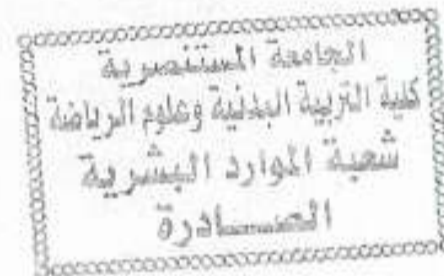 الجامعة المستنصرية
كلية التربية البدنية وعلوم الرياضة
شعبة الموارد البشرية
الصـــادرة